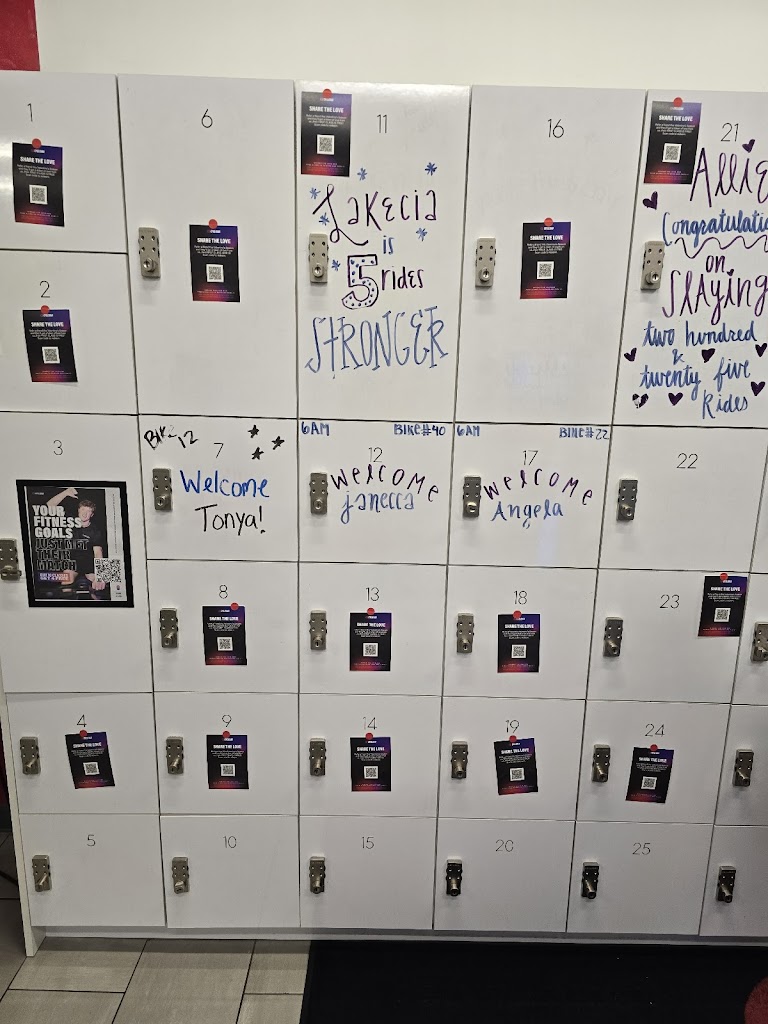 1
SHARE THE LOVE
2
SHARE THE LOVE
3
YOUR
FITNESS
GOALS
JUST MET
THEIR
MATCH
4
SHARE THE LOVE
5
6
SHARE THE LOVE
BIKE 12
7
Welcome
Tonya!
8
SHARE THE LOVE
9
SHARE THE LOVE
10
SHARE THE LOVE
11
Lakecia
is
5 rides
STRONGER
6AM BIKE#40
12
Welcome
janecca
13
SHARE THE LOVE
14
SHARE THE LOVE
15
16
SHARE THE LOVE
6AM BIKE#22
17
Welcome
Angela
18
SHARE THE LOVE
19
SHARE THE LOVE
20
SHARE THE LOVE
21
Allie
Congratulatio
on
SLAYING
two hundred
&
twenty five
Rides
22
23
SHARE THE LOVE
24
SHARE THE LOVE
25